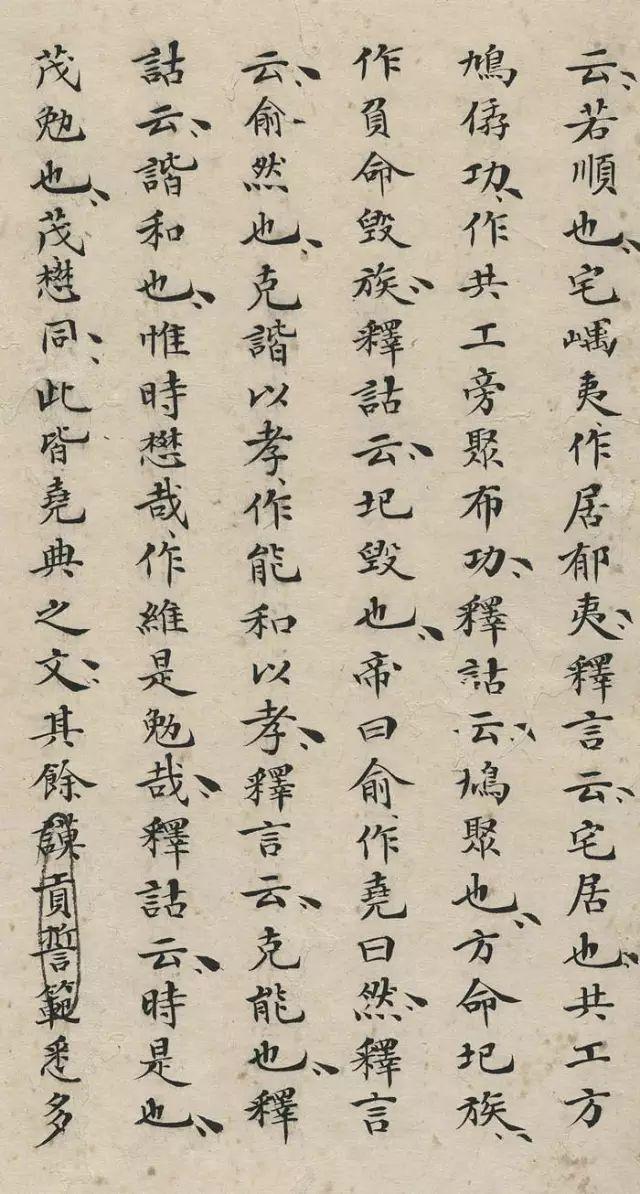 云、若順也、宅嵎夷、作居郁夷、釋言云、宅居也、共工方
鳩僝功、作共工旁聚布功、釋詁云、鳩聚也、方命圯族、
作負命毀族、釋詁云、圯毀也、帝曰俞、作堯曰然、釋言
云、俞然也、克諧以孝、作能和以孝、釋言云、克能也、釋
詁云、諧和也、惟時懋哉、作維是勉哉、釋詁云、時是也、
茂勉也、茂懋同、此皆堯典之文、其餘謨貢誓範悉多